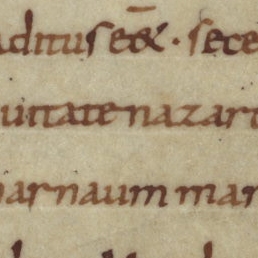 aditus ee̅& · sece
uitate nazar
arnaum mar